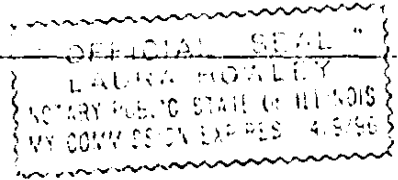 " OFFICIAL SEAL "
LAURA HOWLEY
NOTARY PUBLIC STATE OF ILLINOIS
MY COMMISSION EXPIRES 4/9/96